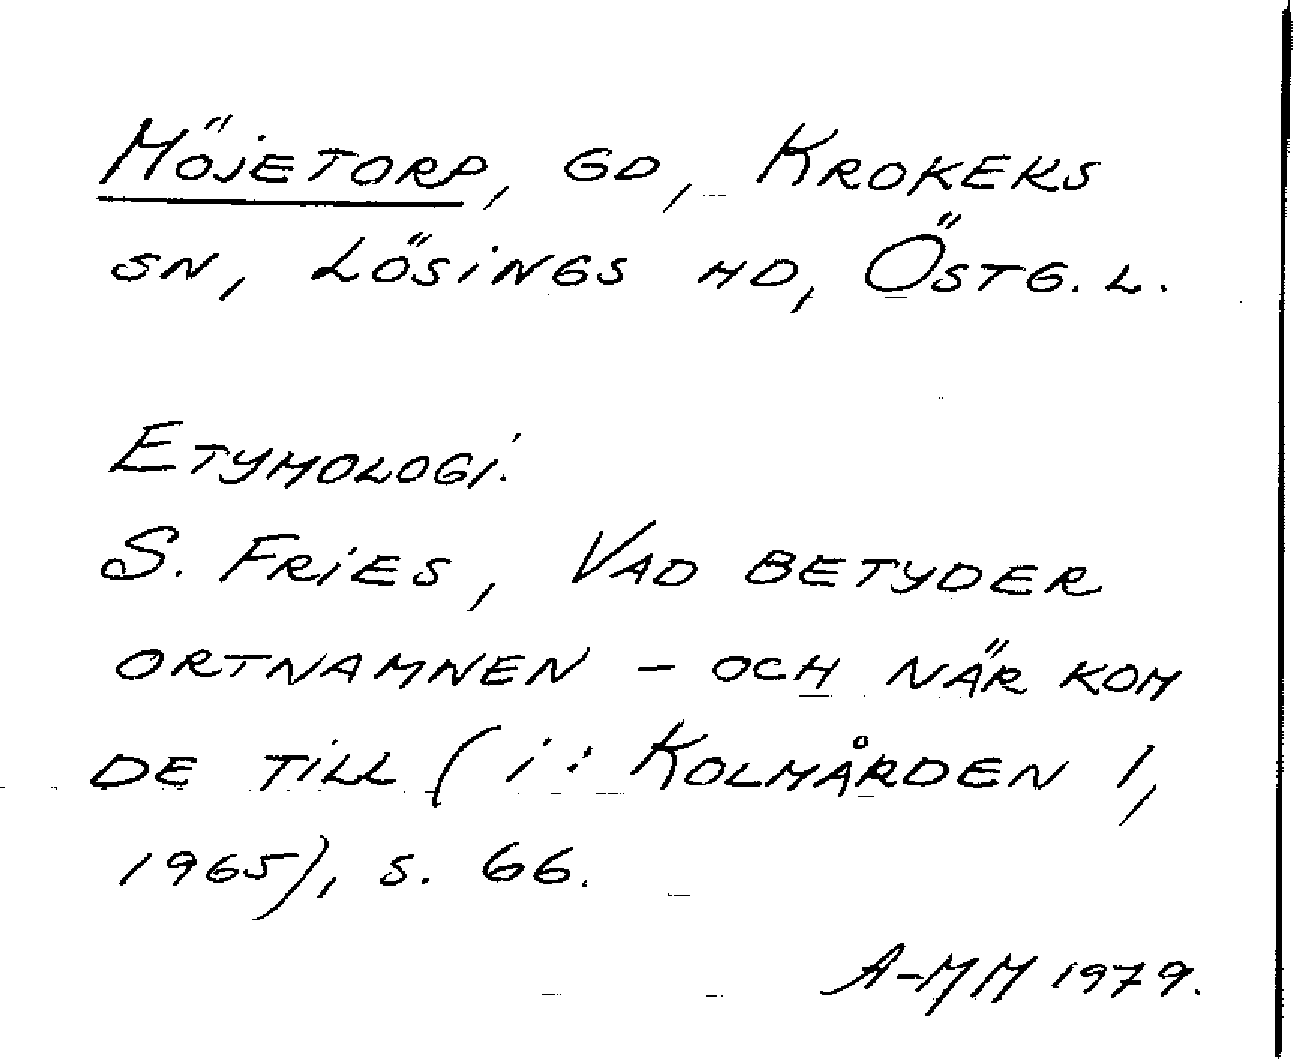 Möjetorp, gd, Krokeks
sn, Lösings hd, Östg. l.
Etymologi:
S. Fries, Vad betyder
ortnamnen – och när kom
de till (i: Kolmården 1,
1965), s. 66.
A-MM 1979.